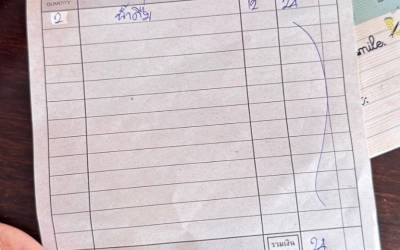 QUANTITY
2 น้ำดื่ม 12 24
smile.
รวมเงิน 24